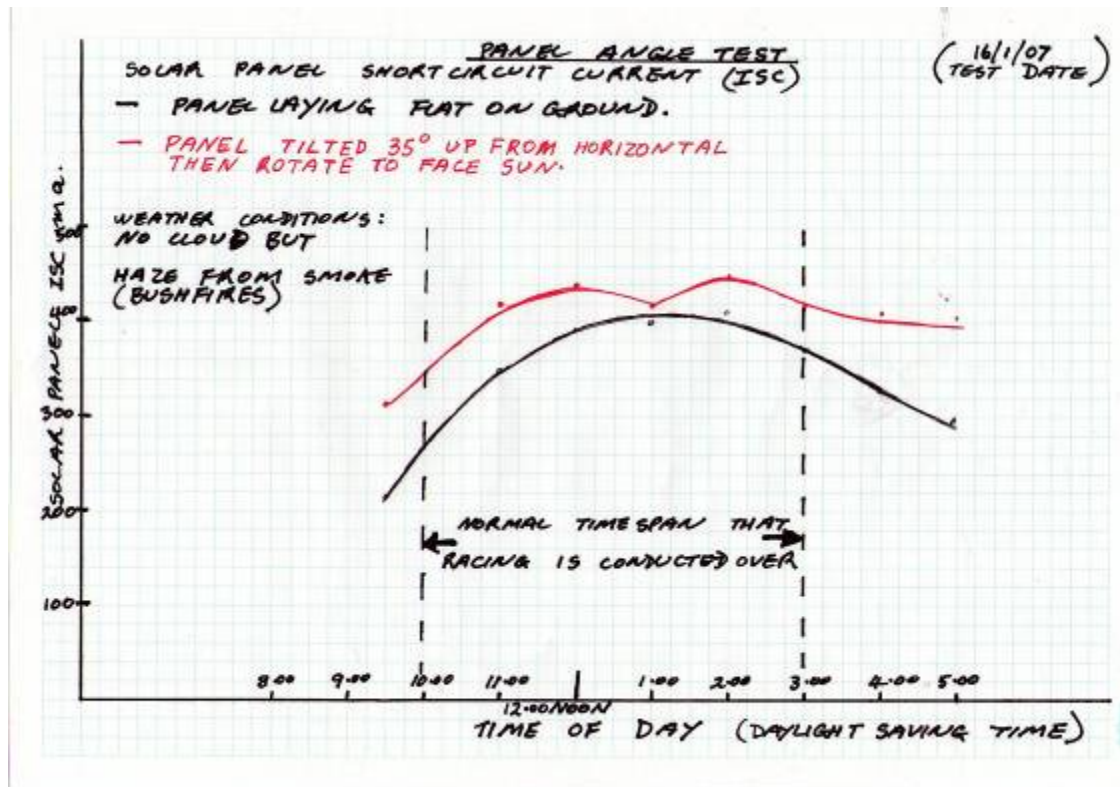 PANEL ANGLE TEST
(16/1/07
TEST DATE)
SOLAR PANEL SHORTCIRCUIT CURRENT (ISC)
— PANEL LAYING FLAT ON GROUND.
— PANEL TILTED 35° UP FROM HORIZONTAL
THEN ROTATE TO FACE SUN.
WEATHER CONDITIONS:
NO CLOUD BUT
HAZE FROM SMOKE
(BUSHFIRES)
SOLAR PANEL ISC
500
400
300
200
100
NORMAL TIMESPAN THAT
RACING IS CONDUCTED OVER
8.00 9.00 10.00 11.00 1.00 2.00 3.00 4.00 5.00
12.00NOON
TIME OF DAY (DAYLIGHT SAVING TIME)